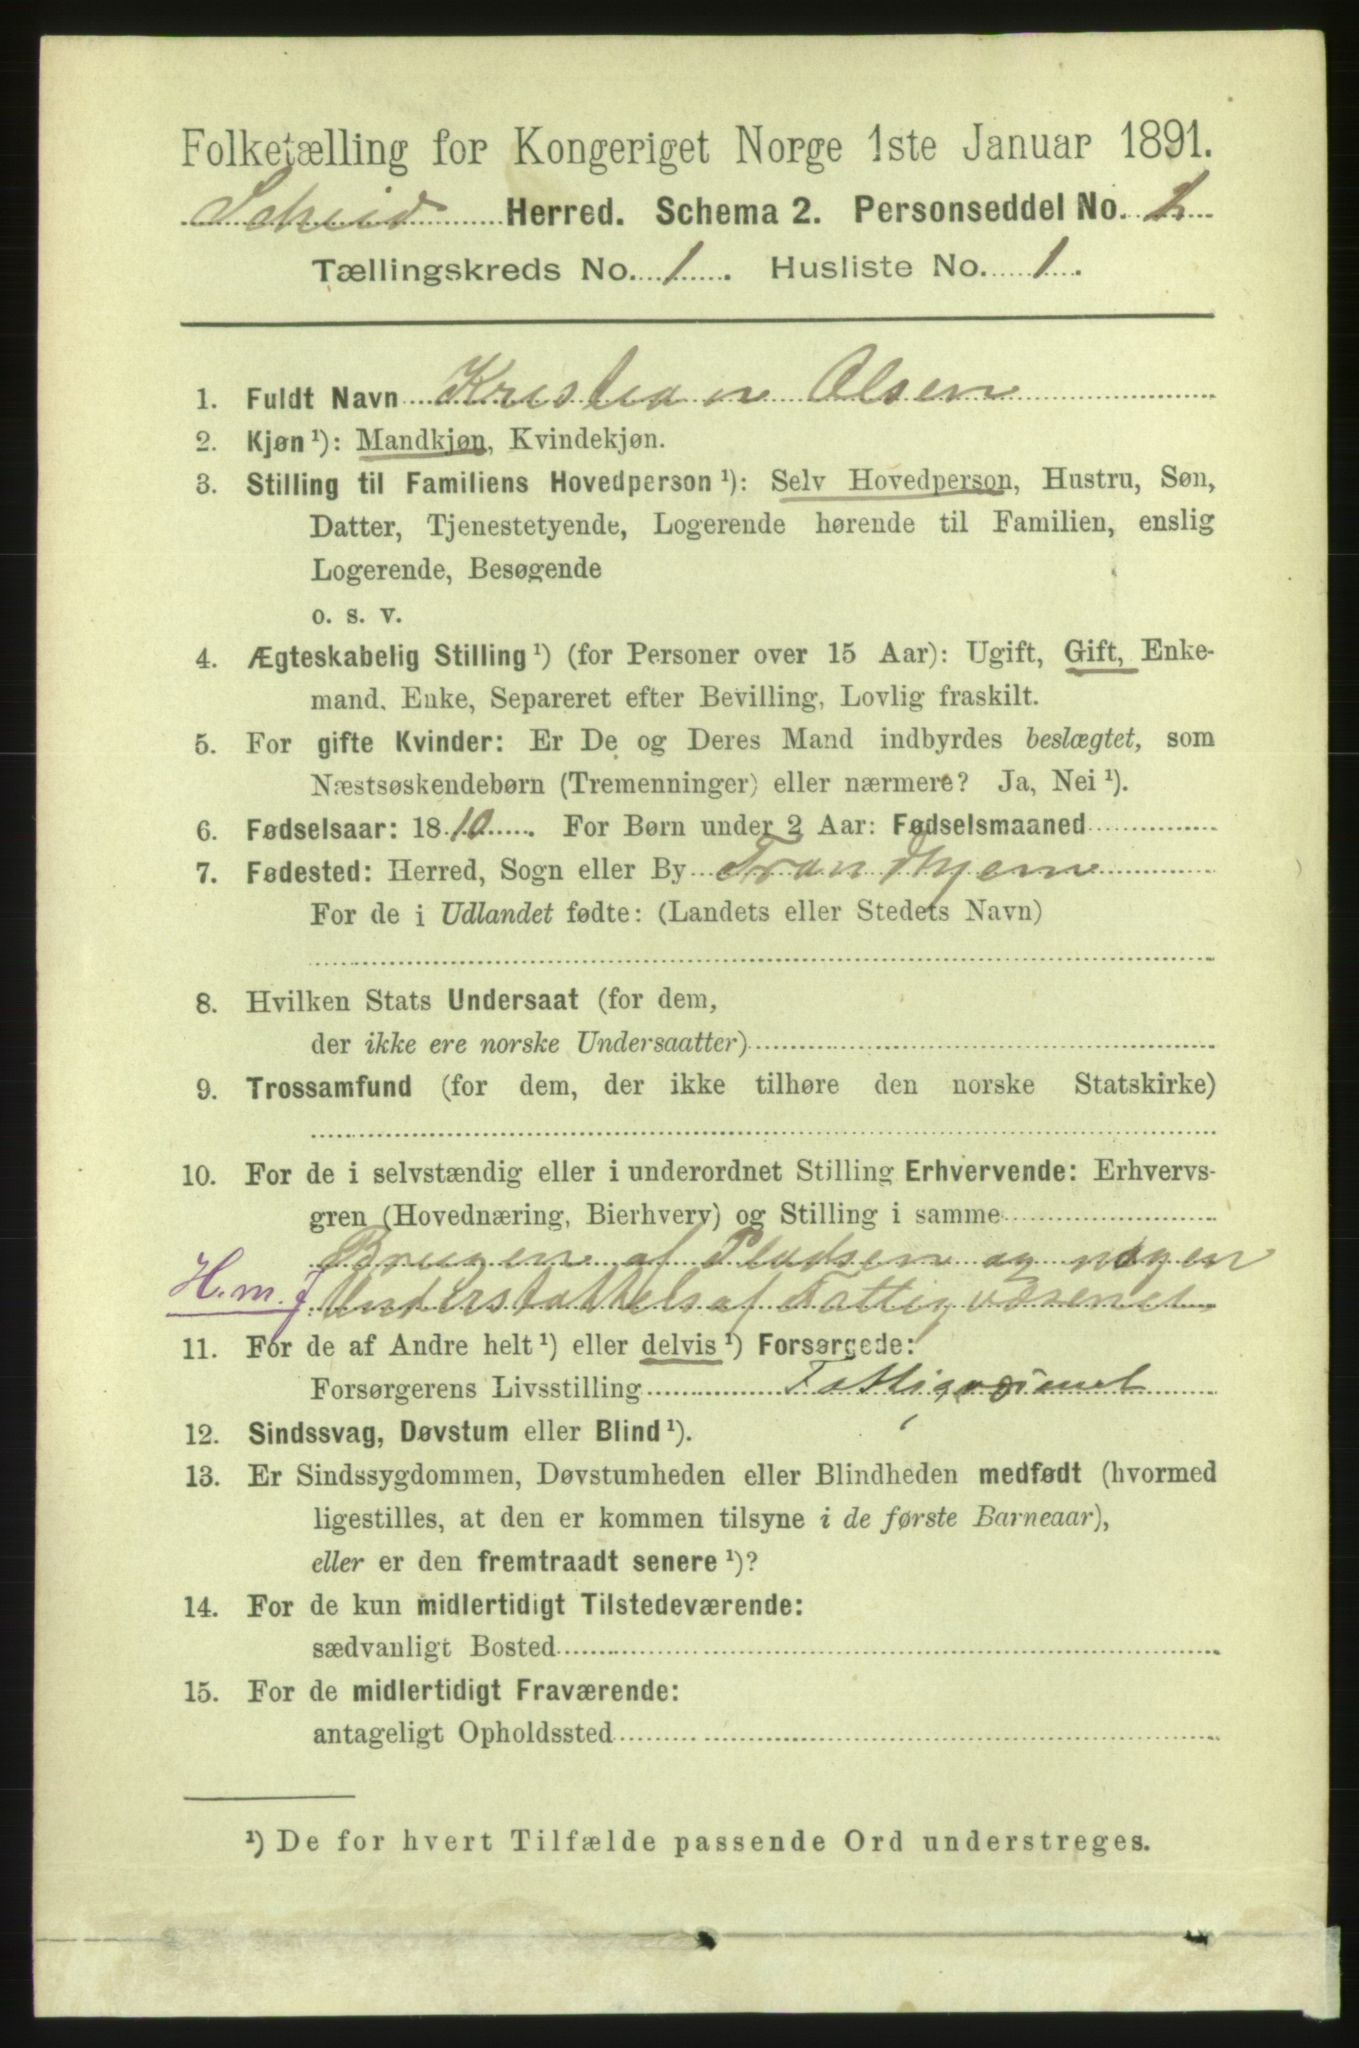 Folketælling for Kongeriget Norge 1ste Januar 1891.
Herred. Schema 2. Personseddel No. 2
Tællingskreds No. 1. Husliste No. 1.
1. Fuldt Navn Kristian Olsen
2. Kjøn ¹): Mandkjøn, Kvindekjøn.
3. Stilling til Familiens Hovedperson ¹): Selv Hovedperson, Hustru, Søn,
Datter, Tjenestetyende, Logerende hørende til Familien, enslig
Logerende, Besøgende
o. s. v.
4. Ægteskabelig Stilling ¹) (for Personer over 15 Aar): Ugift, Gift, Enke-
mand, Enke, Separeret efter Bevilling, Lovlig fraskilt.
5. For gifte Kvinder: Er De og Deres Mand indbyrdes beslægtet, som
Næstsøskendebørn (Tremenninger) eller nærmere? Ja, Nei ¹).
6. Fødselsaar: 1810. For Børn under 2 Aar: Fødselsmaaned
7. Fødested: Herred, Sogn eller By Trondhjem
For de i Udlandet fødte: (Landets eller Stedets Navn)
8. Hvilken Stats Undersaat (for dem,
der ikke ere norske Undersaatter)
9. Trossamfund (for dem, der ikke tilhøre den norske Statskirke)
10. For de i selvstændig eller i underordnet Stilling Erhvervende: Erhvervs-
gren (Hovednæring, Bierhverv) og Stilling i samme
Brugen af Pladsen og nogen
H.m.f Understøttelse af Fattigvæsenet
11. For de af Andre helt ¹) eller delvis ¹) Forsørgede:
Forsørgerens Livsstilling Fattigvæsenet
12. Sindssvag, Døvstum eller Blind ¹).
13. Er Sindssygdommen, Døvstumheden eller Blindheden medfødt (hvormed
ligestilles, at den er kommen tilsyne i de første Barneaar),
eller er den fremtraadt senere ¹)?
14. For de kun midlertidigt Tilstedeværende:
sædvanligt Bosted
15. For de midlertidigt Fraværende:
antageligt Opholdssted
¹) De for hvert Tilfælde passende Ord understreges.